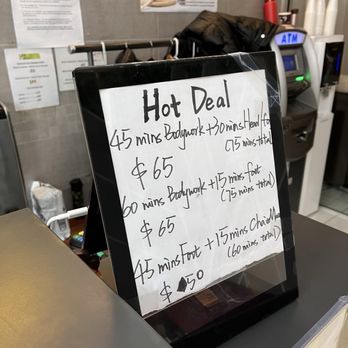 Hot Deal
45 mins Bodywork + 30 mins Head/
(75 mins total)
$65
60 mins Bodywork + 15 mins foot
(75 mins total)
$65
45 mins Foot + 15 mins Chair
(60 mins total)
$50
ATM